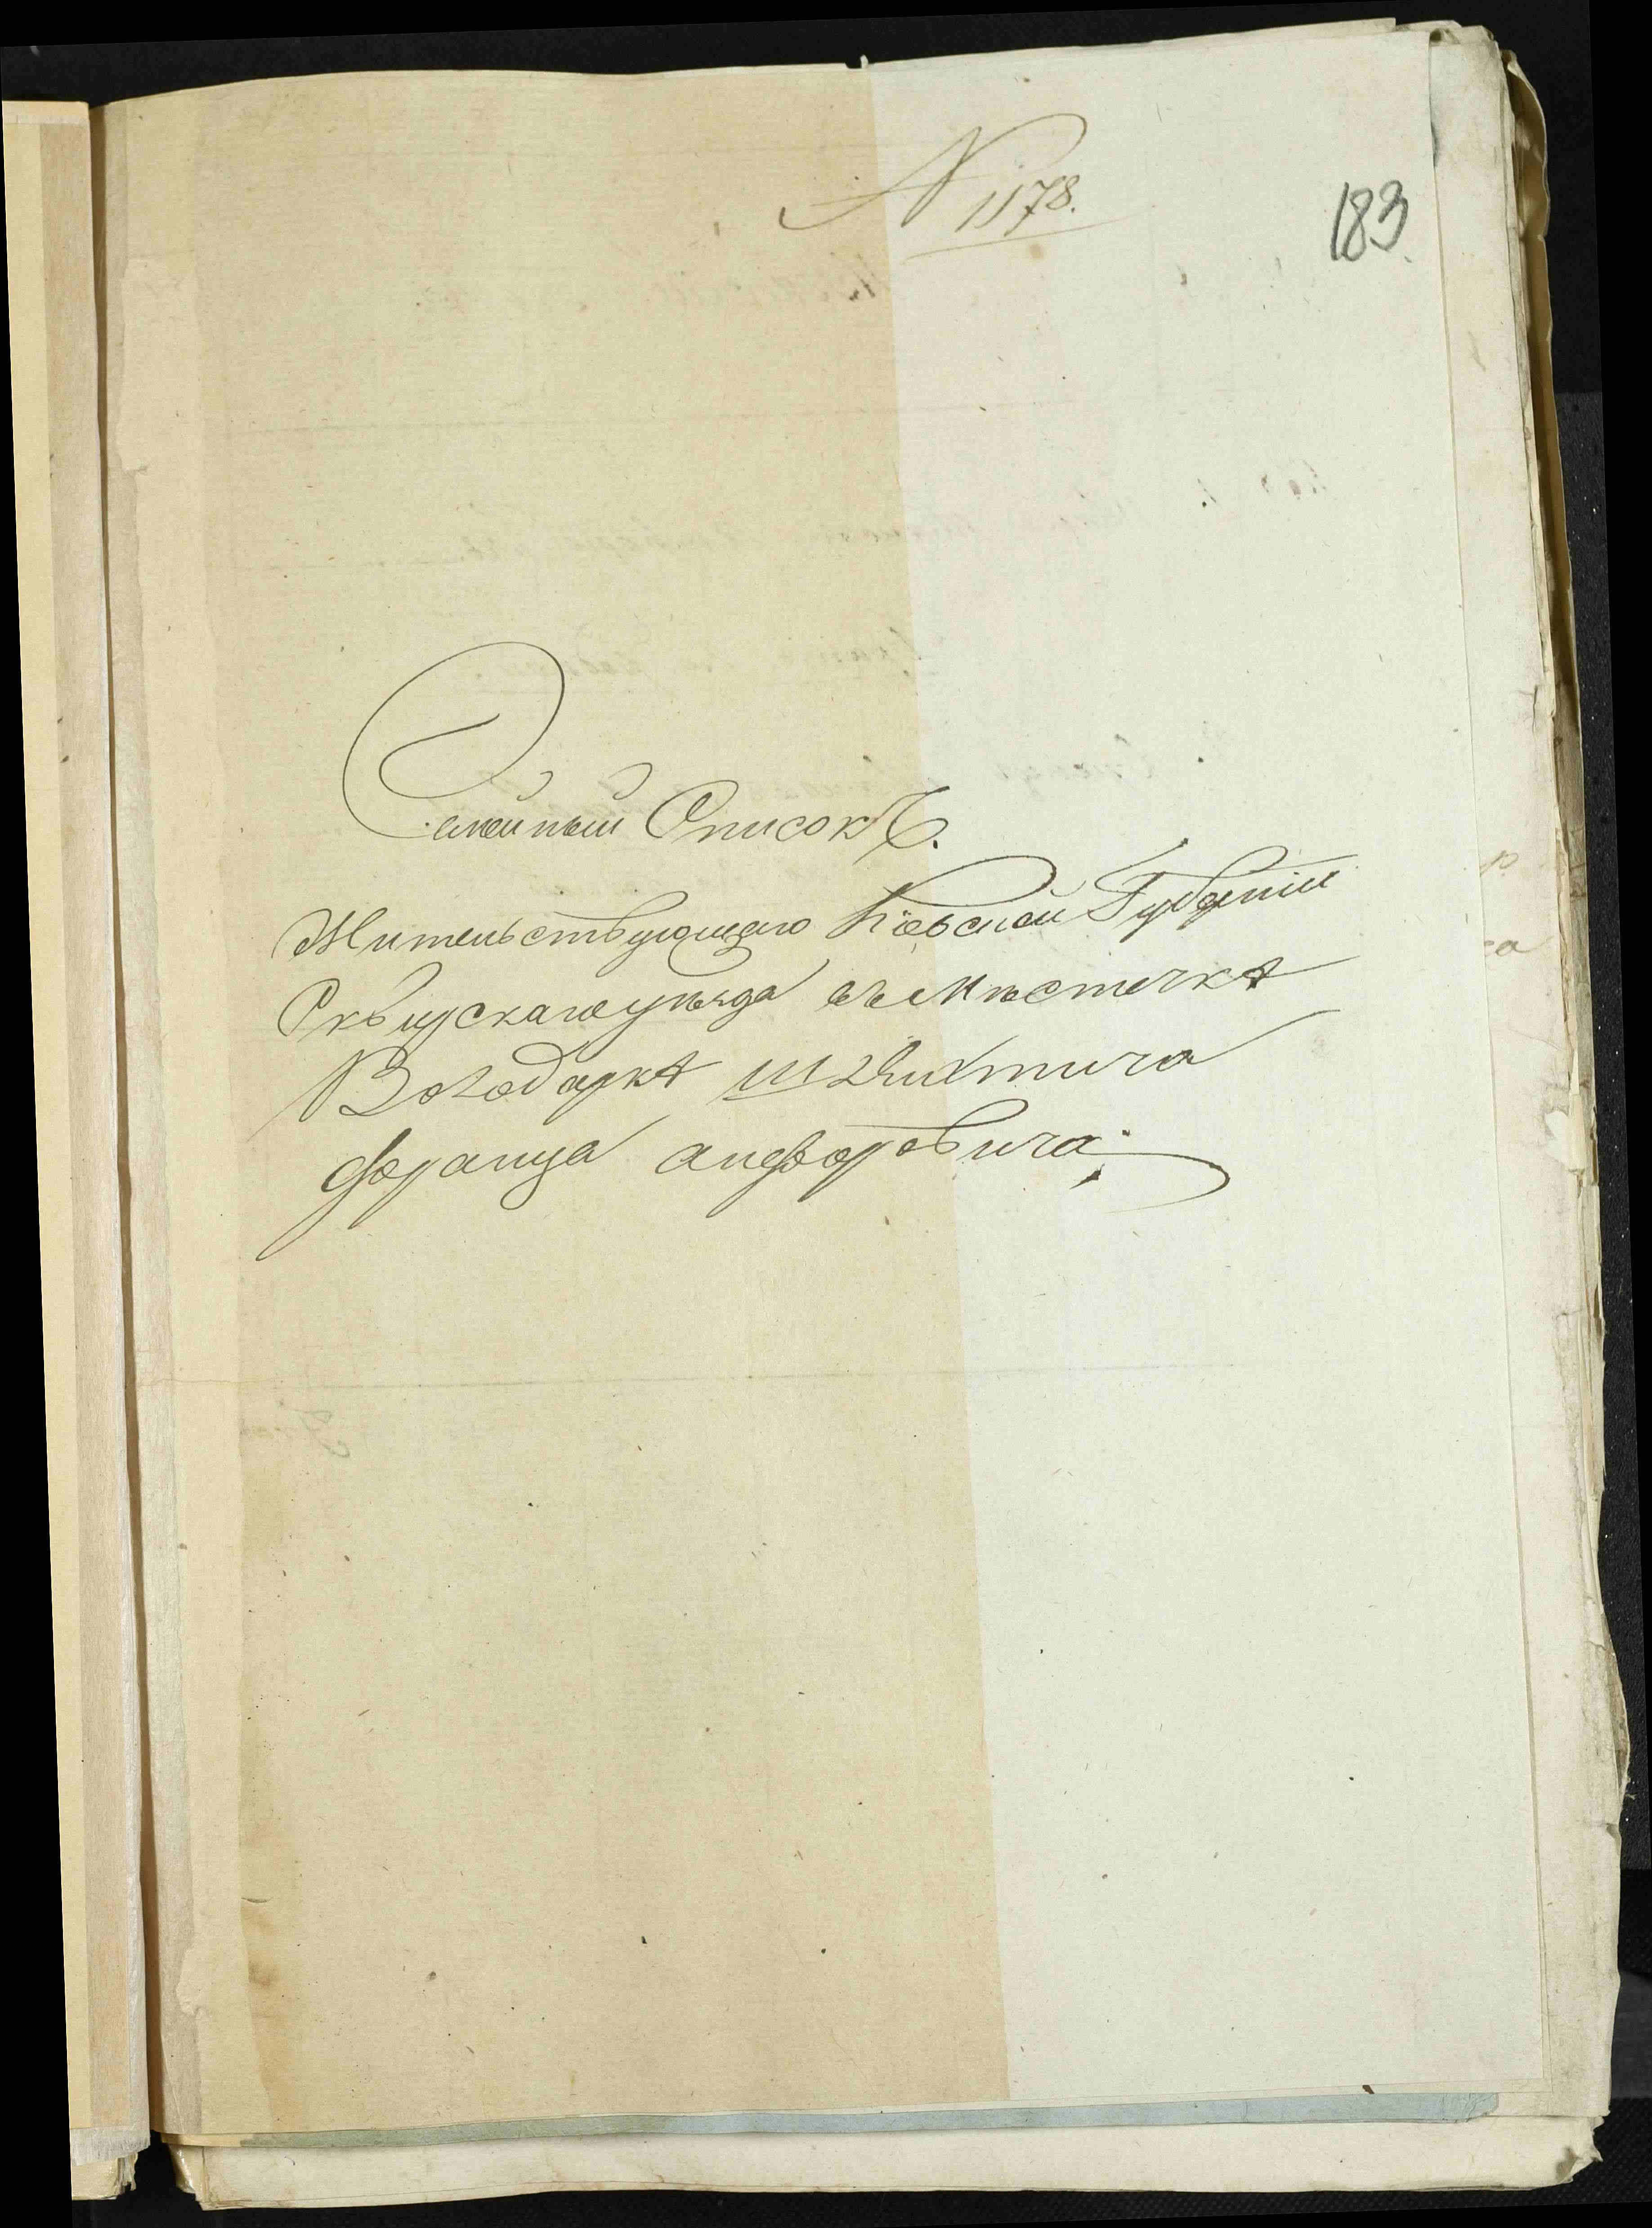 № 1178.
183
Семейный Списокъ.
Жительствующаго Кіевской Губерніи
Сквирскаго уѣзда въ Мѣстечкѣ
Володаркѣ
Франца